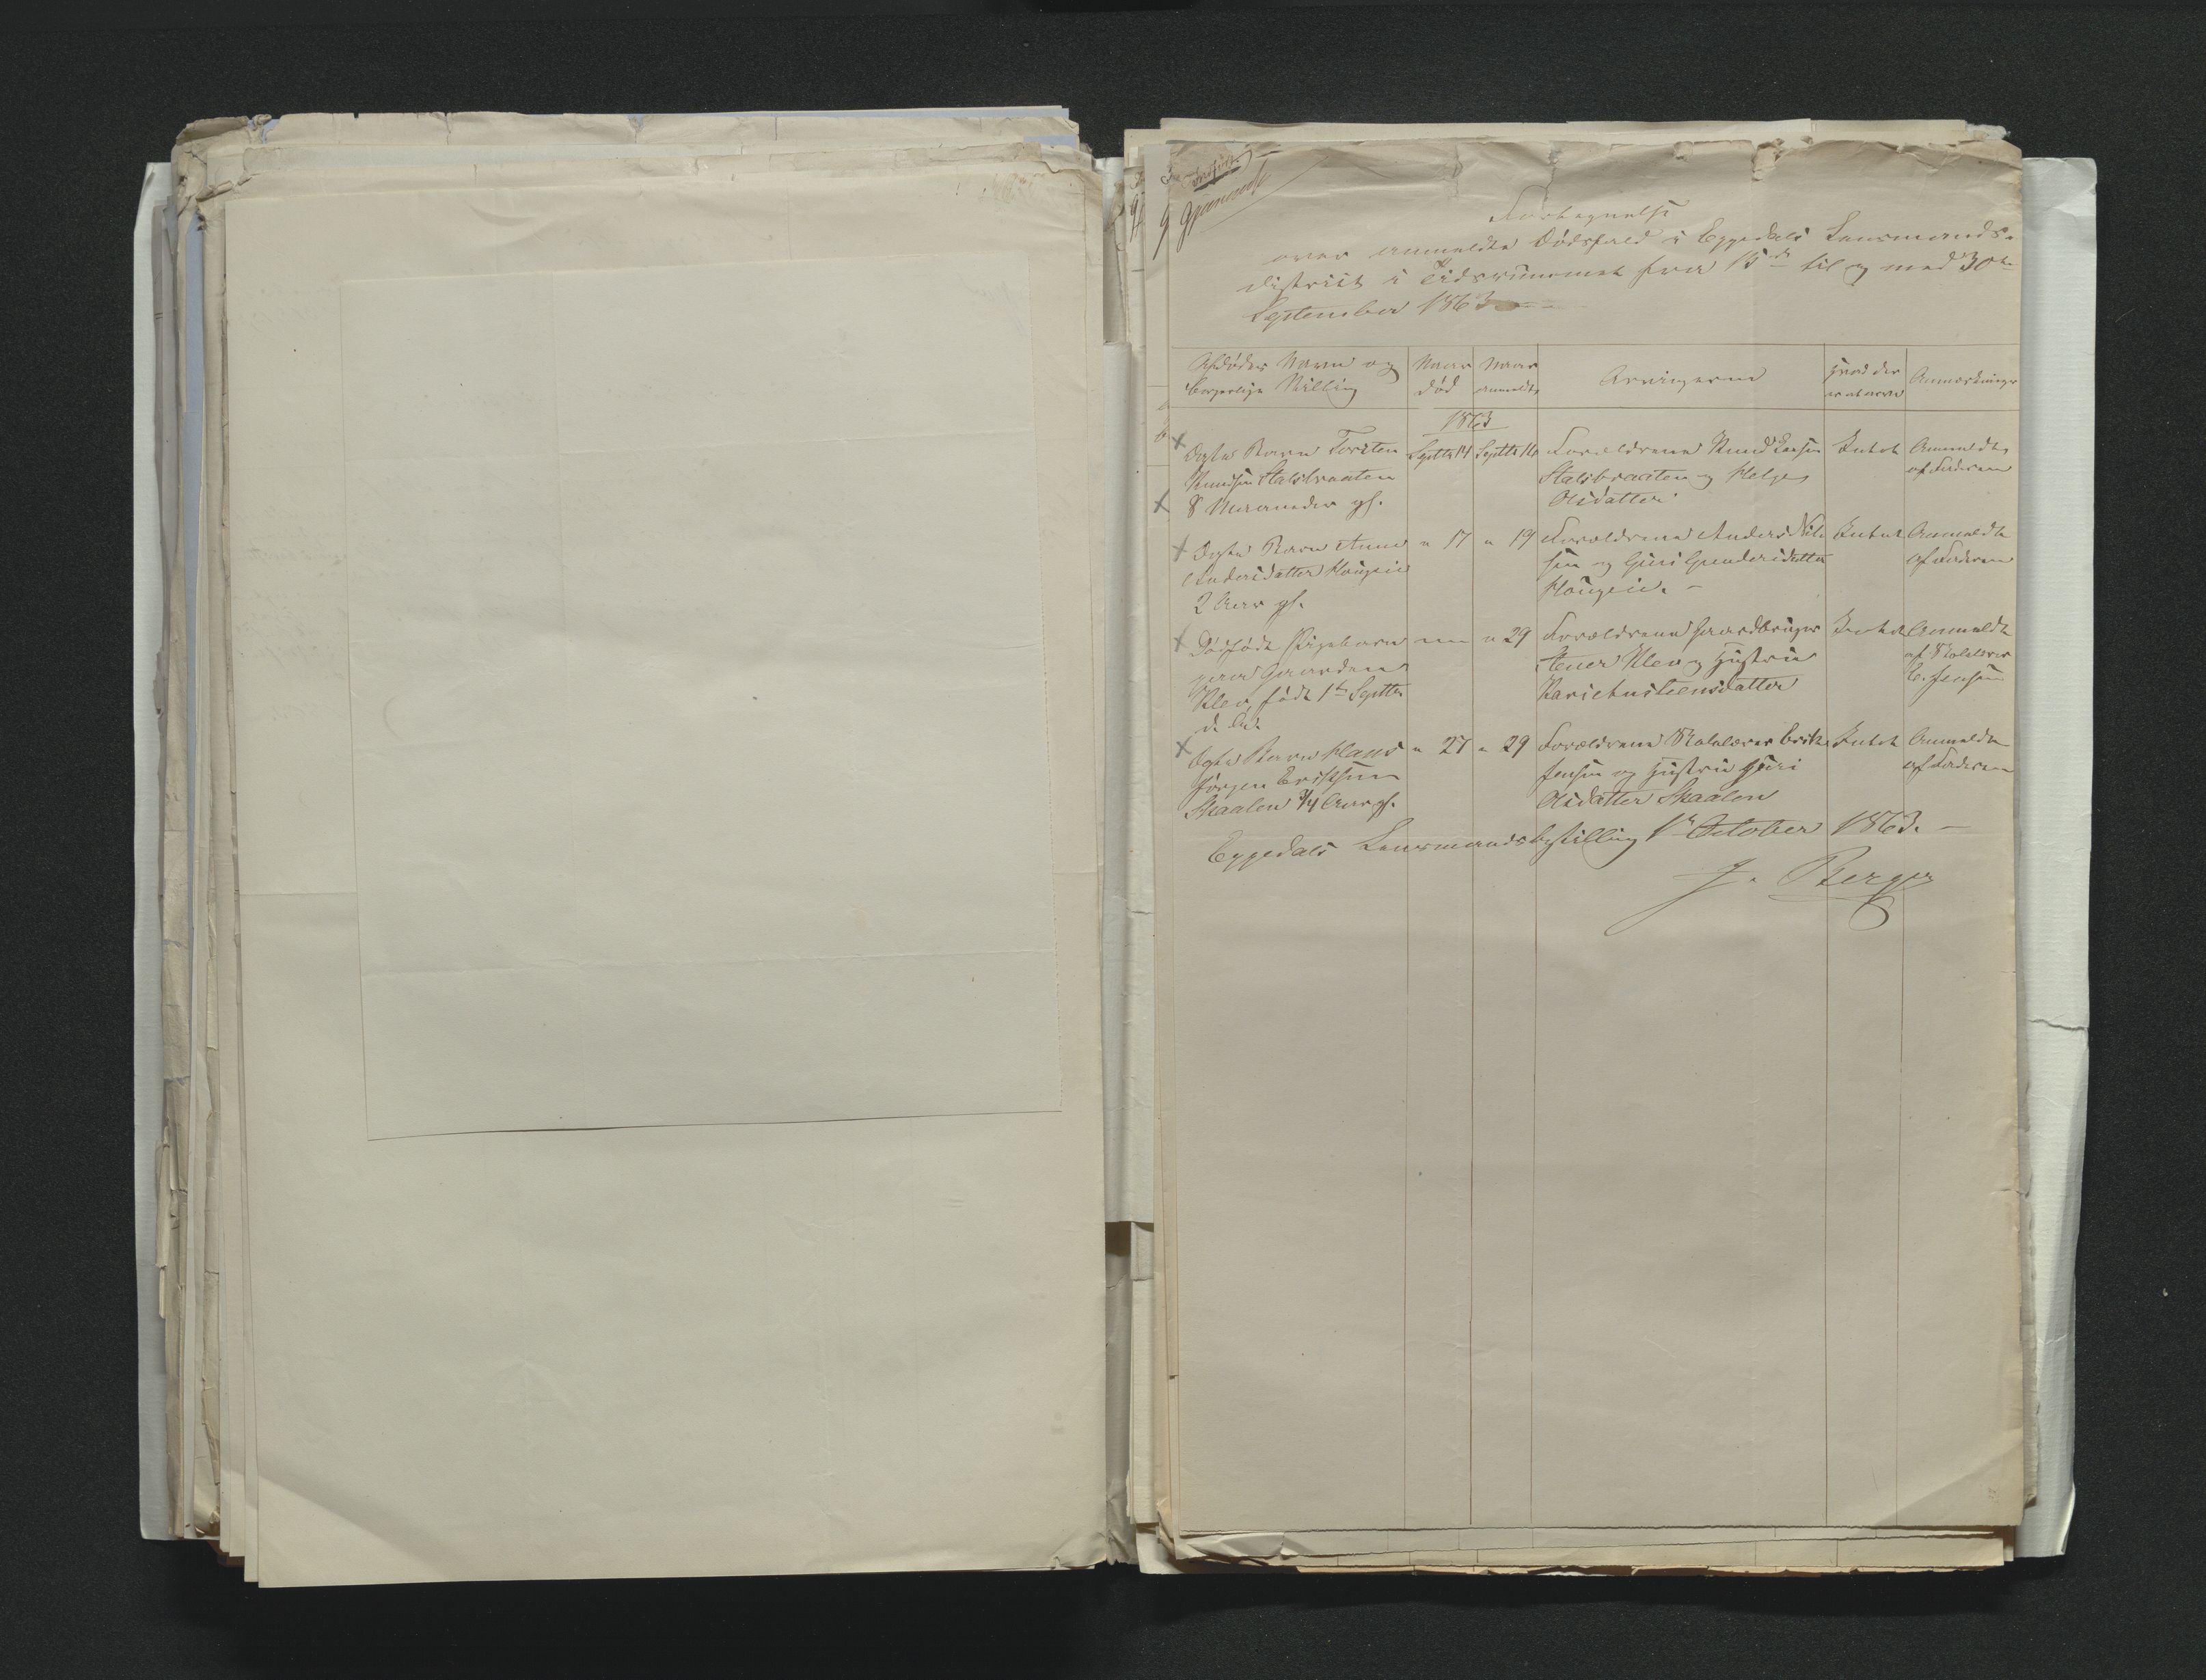 Fortegnelse
over anmeldte Dødsfald i Eggedals Lensmands-
distrikt i Tidsrummet fra 15de til og med 30te
September 1863
Afdødes Navn og
borgerlige Stilling
Naar
død
Naar
anmeldt
Arvingerne
Hvad der
er at arve
Anmærkninger
1863
Ægte Barn Torsten
Knudsen Stalsbraaten
8 Maaneder gl.
Septbr 14
Septbr 16
Forældrene Knud
Stalsbraaten og Helge
Olsdatter
Intet
Anmeldt
af Faderen
Ægte Barn Anne
Andersdatter Hougen
2 Aar gl.
" 17
" 19
Forældrene Anders Nil-
sen og Guri Gundersdatter
Hougen. -
Intet
Anmeldt
af Faderen
Dødfødt Pigebarn
paa Gaarden
Klev, født 1te Septbr
d. A.
" 29
Forældrene Gaardbruger
Stener Klev og Hustru
Kari Christensdatter
Intet
Anmeldt
af Skolelærer
E. Jensen
Ægte Barn Hans
Jørgen Eriksen
Skaalen 3/4 Aar gl.
" 27
" 29
Forældrene Skolelærer Erik
Jensen og Hustru Guri
Olsdatter Skaalen
Intet
Anmeldt
af Faderen
Eggedals Lensmandsbestilling 1te October 1863. -
J. Berger